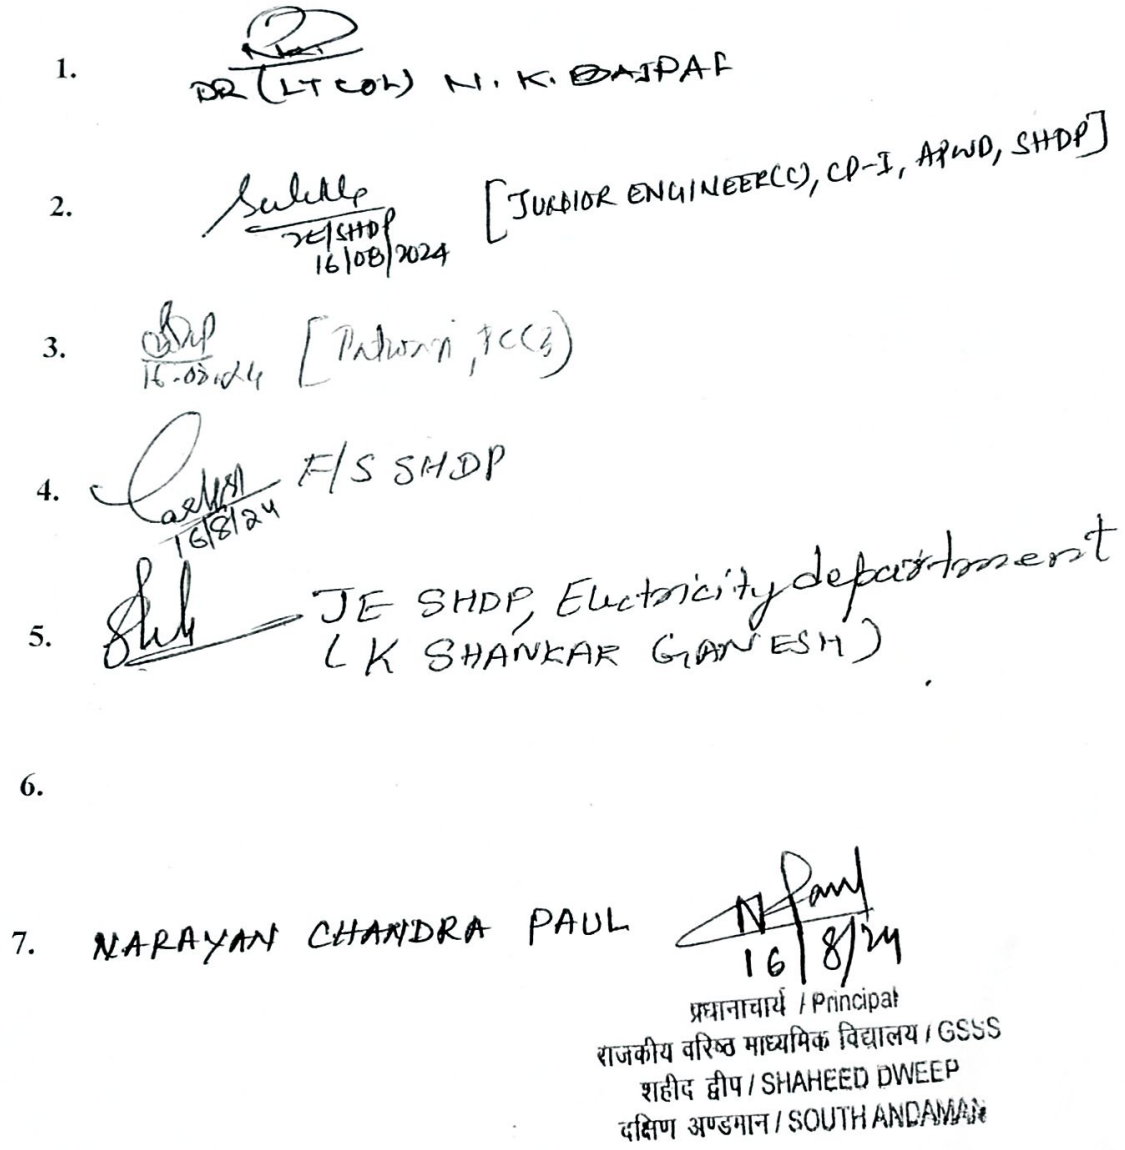 1.
DR (LT COL) N. K. BAJPAI
2. [JUNIOR ENGINEER(C), CP-I, APWD, SHDP]
JE/SHDP
16/08/2024
3. [Patwari,
16-08-24
4. F/S SHDP
16/8/24
5. JE SHDP, Electricity department
(K SHANKAR GANESH)
6.
7. NARAYAN CHANDRA PAUL N Paul
16/8/24
प्रधानाचार्य / Principal
राजकीय वरिष्ठ माध्यमिक विद्यालय / GSSS
शहीद द्वीप / SHAHEED DWEEP
दक्षिण अण्डमान / SOUTH ANDAMAN